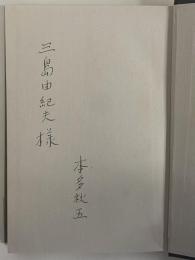 三島由紀夫様
本多秋五